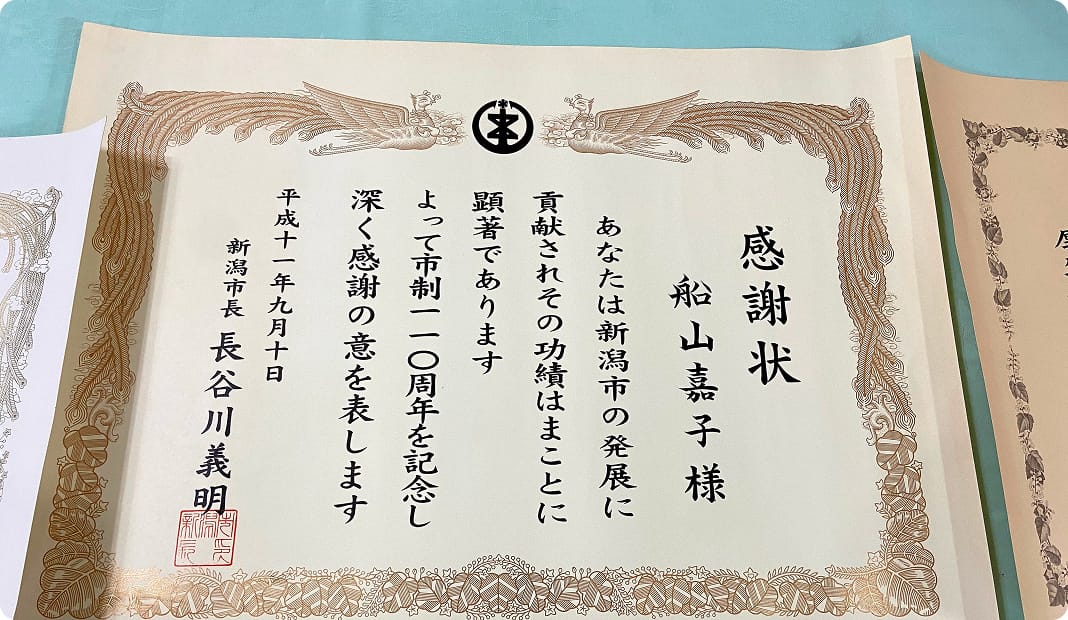 感謝状
船山嘉子様
あなたは新潟市の発展に
貢献されその功績はまことに
顕著であります
よって市制一一〇周年を記念し
深く感謝の意を表します
平成十一年九月十日
新潟市長 長谷川義明
新潟市長之印